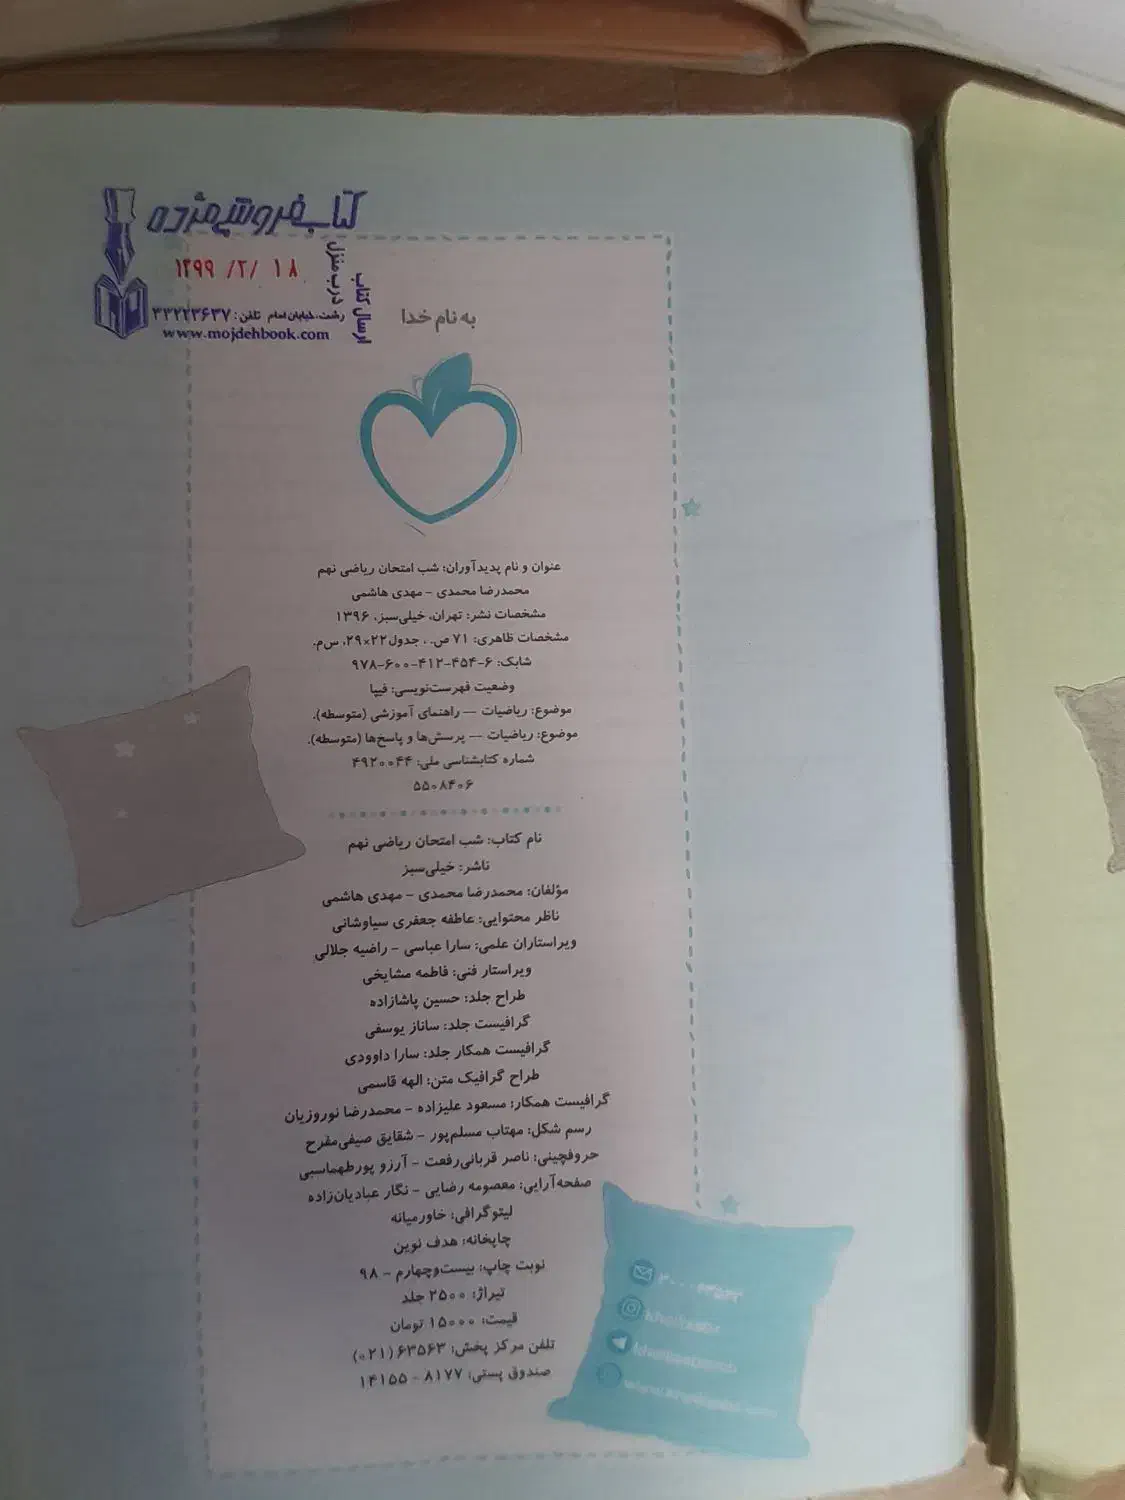 کتابفروشی مژده
۱۳۹۹ /۲/ ۱۸
ارسال کتاب
درب منزل
رشت، خیابان امام تلفن: ۳۳۲۲۳۶۳۷
www.mojdehbook.com
به نام خدا
عنوان و نام پدیدآوران: شب امتحان ریاضی نهم
محمدرضا محمدی - مهدی هاشمی
مشخصات نشر: تهران، خیلی‌سبز، ۱۳۹۶
مشخصات ظاهری: ۷۱ ص. ، جدول۲۲×۲۹، س‌م.
شابک: ۶-۴۵۴-۴۱۲-۶۰۰-۹۷۸
وضعیت فهرست‌نویسی: فیپا
موضوع: ریاضیات — راهنمای آموزشی (متوسطه).
موضوع: ریاضیات — پرسش‌ها و پاسخ‌ها (متوسطه).
شماره کتابشناسی ملی: ۴۹۲۰۰۴۴
۵۵۰۸۴۰۶
نام کتاب: شب امتحان ریاضی نهم
ناشر: خیلی‌سبز
مؤلفان: محمدرضا محمدی - مهدی هاشمی
ناظر محتوایی: عاطفه جعفری سیاوشانی
ویراستاران علمی: سارا عباسی - راضیه جلالی
ویراستار فنی: فاطمه مشایخی
طراح جلد: حسین پاشازاده
گرافیست جلد: ساناز یوسفی
گرافیست همکار جلد: سارا داوودی
طراح گرافیک متن: الهه قاسمی
گرافیست همکار: مسعود علیزاده - محمدرضا نوروزیان
رسم شکل: مهتاب مسلم‌پور - شقایق صیفی‌مفرح
حروفچینی: ناصر قربانی‌رفعت - آرزو پورطهماسبی
صفحه‌آرایی: معصومه رضایی - نگار عبادیان‌زاده
لیتوگرافی: خاورمیانه
چاپخانه: هدف نوین
نوبت چاپ: بیست‌وچهارم - ۹۸
تیراژ: ۲۵۰۰ جلد
قیمت: ۱۵۰۰۰ تومان
تلفن مرکز پخش: ۶۳۵۶۳(۰۲۱)
صندوق پستی: ۸۱۷۷ - ۱۴۱۵۵